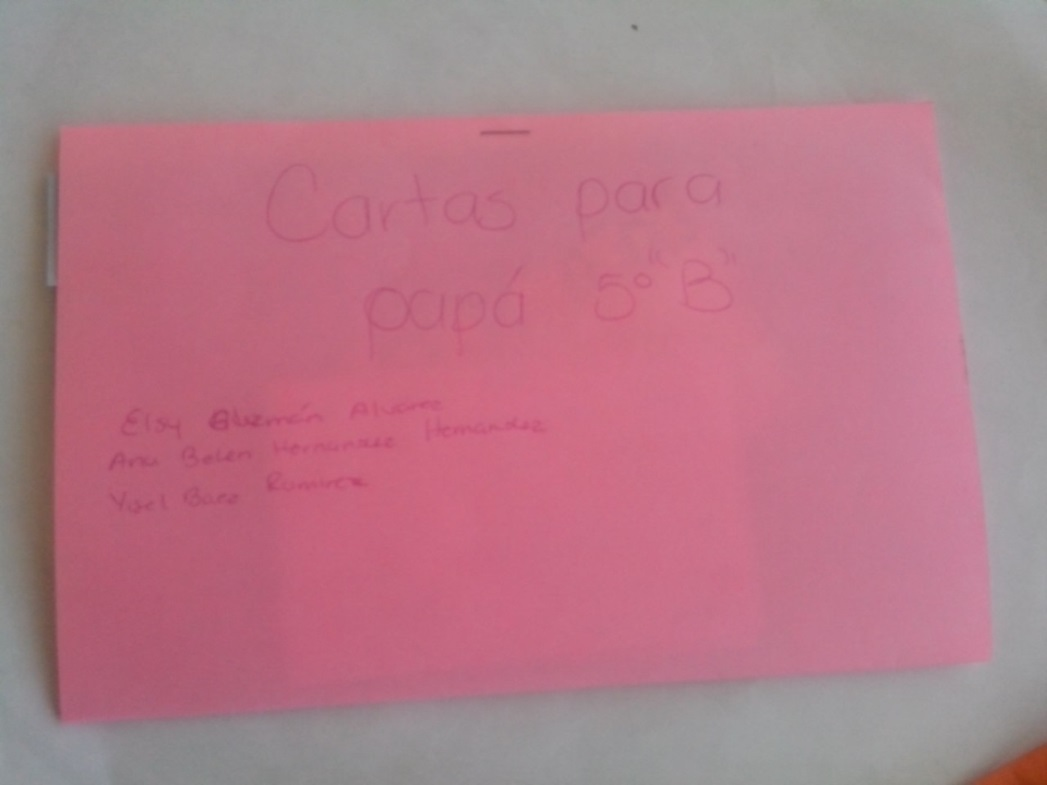 Cartas para
papá 5° "B"
Elsy Guzmán Alvarez
Ana Belen Hernandez Hernandez
Yisel Baez Ramirez